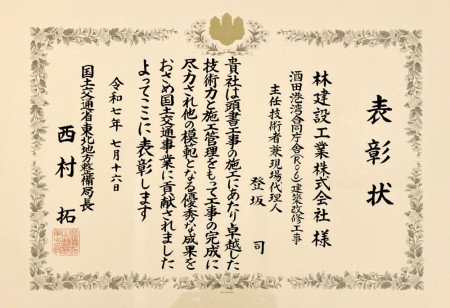 表彰状
林建設工業株式会社 様
酒田港湾合同庁舎(R6)建築改修工事
主任技術者兼現場代理人
登坂 司
貴社は頭書工事の施工にあたり卓越した
技術力と施工管理をもって工事の完成に
尽力され他の模範となる優秀な成果を
おさめ国土交通事業に貢献されました
よってここに表彰します
令和七年 七月十六日
国土交通省東北地方整備局長
西村 拓